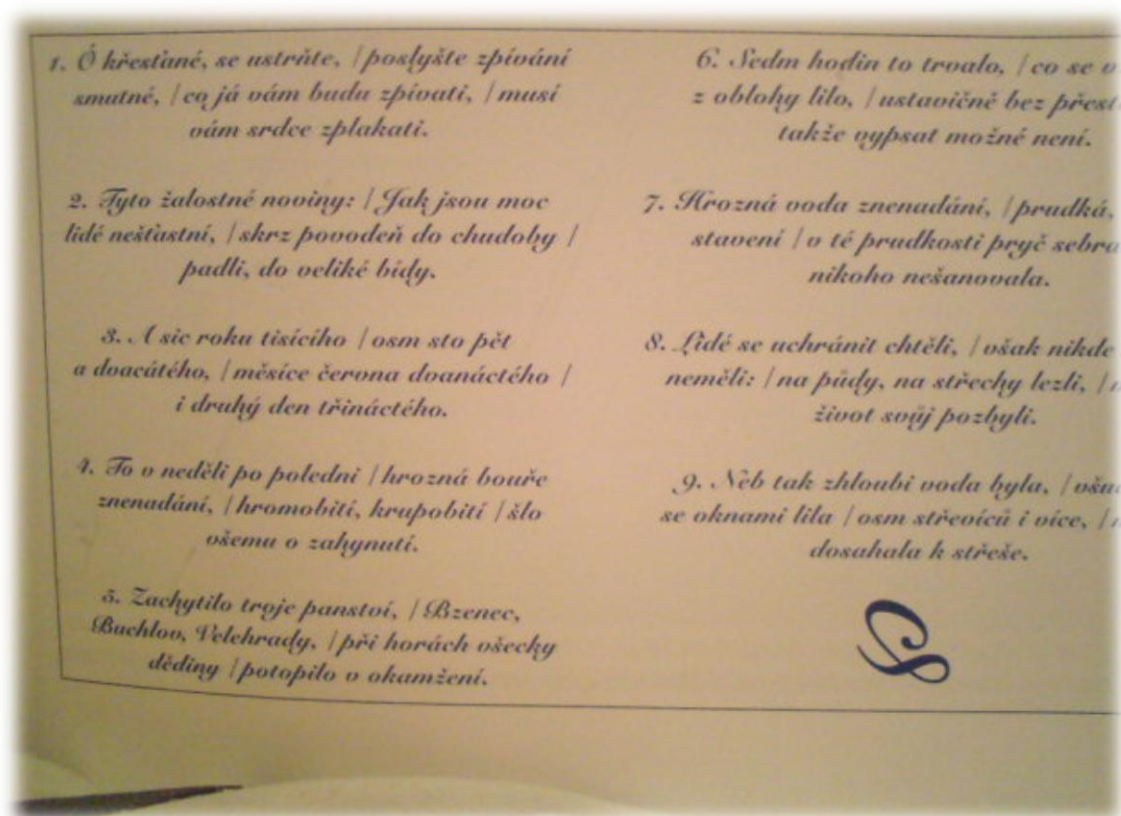 1. Ó křesťané, se ustrňte, / poslyšte zpívání
smutné, / co já vám budu zpívati, / musí
vám srdce zplakati.
2. Tyto žalostné noviny: / Jak jsou moc
lidé nešťastní, / skrz povodeň do chudoby /
padli, do veliké bídy.
3. A sic roku tisícího / osm sto pět
a dvacátého, / měsíce června dvanáctého /
i druhý den třináctého.
4. To v neděli po poledni / hrozná bouře
znenadání, / hromobití, krupobití / šlo
všemu o zahynutí.
5. Zachytilo troje panství, / Bzenec,
Buchlov, Velehrady, / při horách všecky
dědiny / potopilo v okamžení.
6. Sedm hodin to trvalo, / co se
z oblohy lilo, / ustavičně bez
takže vypsat možné není.
7. Hrozná voda znenadání, / prudká,
stavení / v té prudkosti pryč
nikoho nešanovala.
8. Lidé se uchránit chtěli, / však nikde
neměli: / na půdy, na střechy lezli, /
život svůj pozbyli.
9. Neb tak zhloubi voda byla, /
se oknami lila / osm střevíců i více, /
dosahala k střeše.